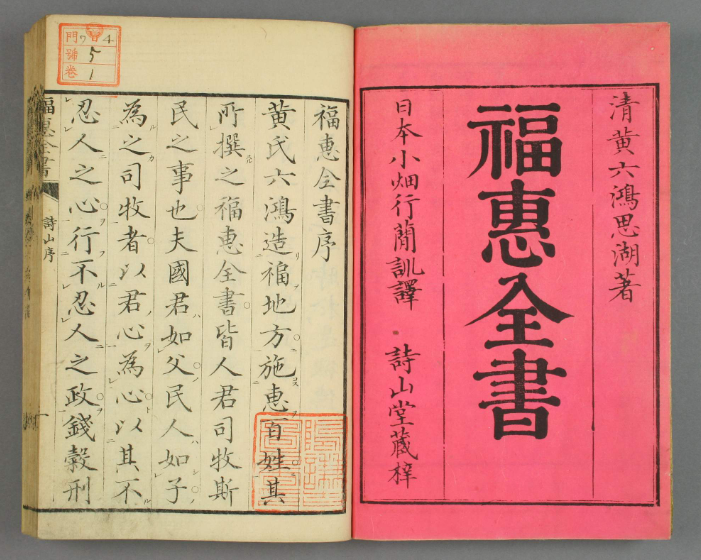 清黄六鴻思湖著
福惠全書
日本小畑行蕑訓譯 詩山堂藏梓
福惠全書序
黄氏六鴻造福地方施惠百姓其
所撰之福惠全書皆人君司牧斯
民之事也夫國君如父民人如子
為之司牧者以君心為心以其不
忍人之心行不忍人之政錢穀刑
福惠全書
詩山序
門
號
卷
4
5
1